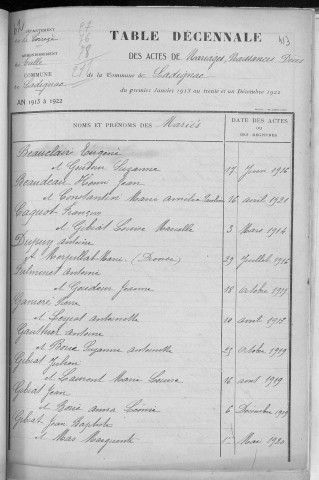 DÉPARTEMENT
de la Corrèze
ARRONDISSEMENT
Tulle
COMMUNE
Ladignac
AN 1913 à 1922
TABLE DÉCENNALE
413
DES ACTES de Mariages, Naissances, Décès
de la Commune de Ladignac
du premier Janvier 1913 au trente et un Décembre 1922
NOMS ET PRÉNOMS DES Mariés
DATE DES ACTES
OU
DES REGISTRES
Beauclair Eugène
et Suzanne 17 Juin 1916
Beaudeau Henri Jean
et Constantin Marie 16 avril 1921
et Gibiat Marcelle 3 Mars 1914
Dupuy antoine
et Marpillat Marie (Divorce) 29 Juillet 1916
antoine
et 18 octobre 1921
Pierre
et antoinette 10 août
Gauthier antoine
et Suzanne antoinette 25 octobre 1919
Gibiat Julien
et Laumont Marie Louise 16 août 1919
Gibiat Jean
et anna 6 Décembre 1919
Gibiat Jean Baptiste
et Mas Marguerite 1er Mai 1920